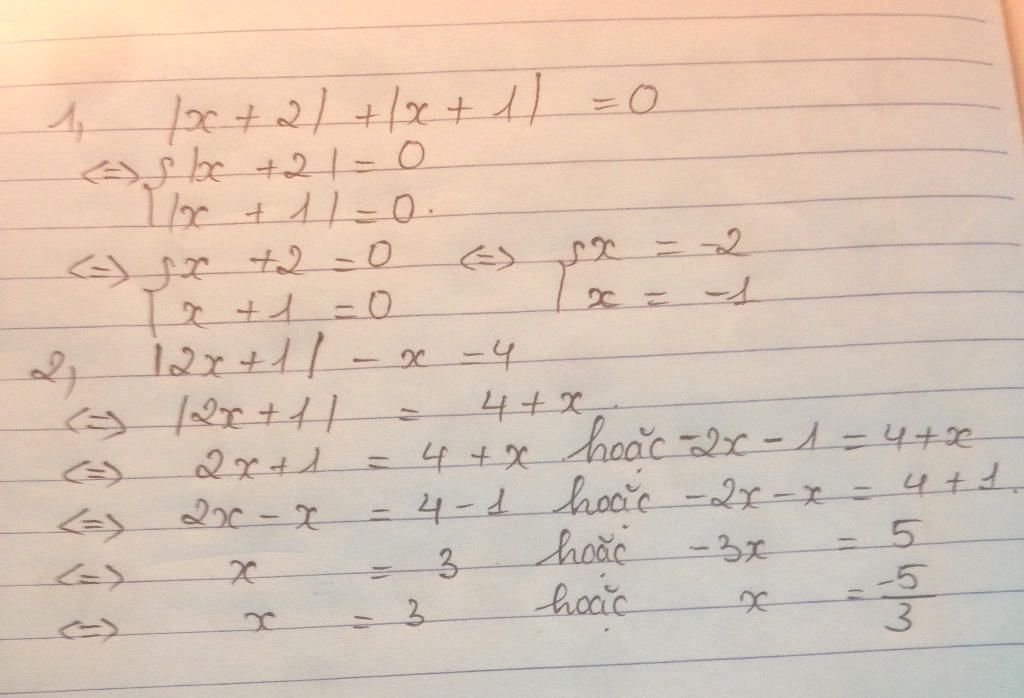 1, |x + 2| + |x + 1| = 0
<=> { |x + 2| = 0
|x + 1| = 0.
<=> { x + 2 = 0 <=> { x = -2
x + 1 = 0 x = -1
2, |2x + 1| - x = 4
<=> |2x + 1| = 4 + x.
<=> 2x + 1 = 4 + x hoặc -2x - 1 = 4 + x
<=> 2x - x = 4 - 1 hoặc -2x - x = 4 + 1.
<=> x = 3 hoặc -3x = 5
<=> x = 3 hoặc x = -5/3